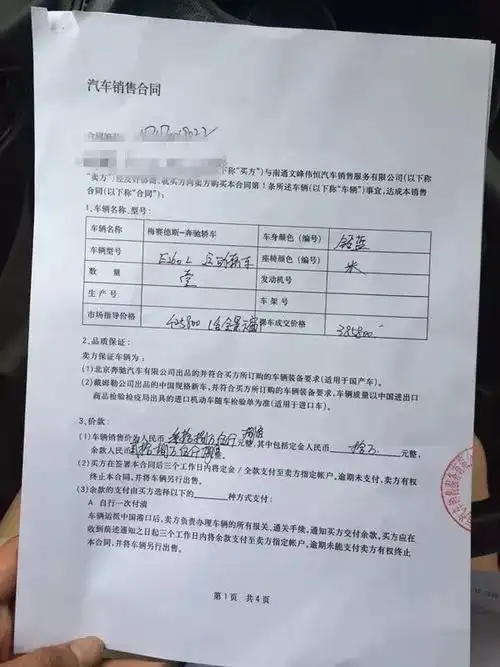 汽车销售合同
合同编号
下称“买方”)与南通文峰伟恒汽车销售服务有限公司(以下称
“卖方”)经友好协商,就买方向卖方购买本合同第1条所述车辆(以下称“车辆”)事宜,达成本销售
合同(以下称“合同”):
1.车辆名称、型号:
车辆名称 梅赛德斯-奔驰轿车 车身颜色(编号)
车辆型号 E260L 座椅颜色(编号) 米
数 量 壹 发动机号
生 产 号 车 架 号
市场指导价格 425800 裸车成交价格 385800
2、品质保证:
卖方保证车辆为:
(1)北京奔驰汽车有限公司出品的并符合买方所订购的车辆装备要求(适用于国产车)。
(2)戴姆勒公司出品的中国规格新车,并符合买方所订购的车辆装备要求,车辆质量以中国进出口
商品检验检疫局出具的进口机动车随车检验单为准(适用于进口车)。
3、价款:
(1)车辆销售价为人民币 元整,其中包括定金人民币 拾万 元整,
余款人民币 元整。
(2)买方在签署本合同后三个工作日内将定金/全款支付至卖方指定帐户,逾期未支付,卖方有权
终止本合同,并将车辆另行出售。
(3)余款的支付由买方选择以下的 种方式支付:
A 自行一次付清
车辆运抵中国港口后,卖方负责办理车辆的所有报关、通关手续,通知买方交付余款,买方应在
收到前述通知之日起三个工作日内将余款支付至卖方指定帐户,逾期未能支付卖方有权终止
本合同,并将车辆另行出售。
第1页 共4页